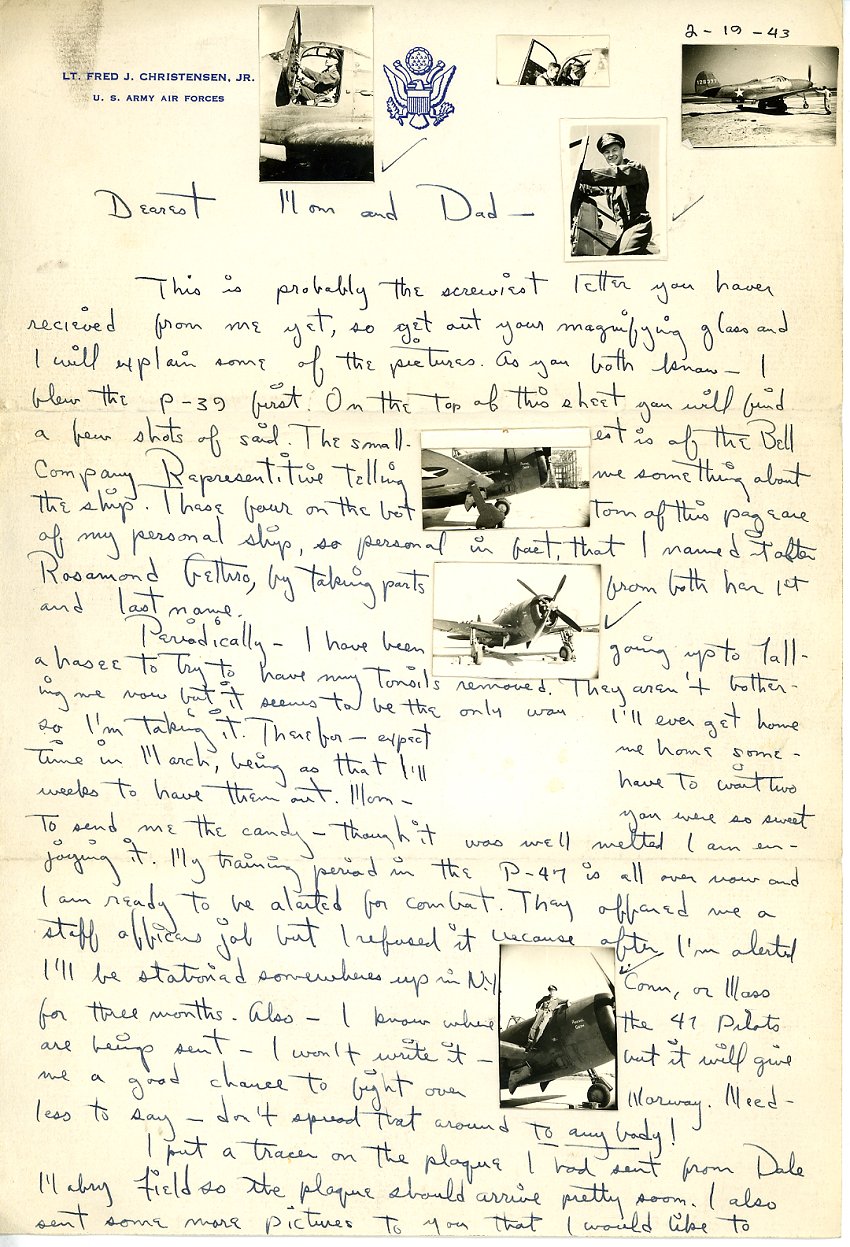 2-19-43
LT. FRED J. CHRISTENSEN, JR.
U. S. ARMY AIR FORCES
Dearest Mom and Dad —
This is probably the screwiest letter you haver
recieved from me yet, so get out your magnifying glass and
I will explain some of the pictures. As you both know — I
flew the P-39 first. On the top of this sheet you will find
a few shots of said. The small- est is of the Bell
Company Representitive telling me something about
the ship. These four on the bot tom of this page are
of my personal ship, so personal in fact, that I named it after
Rosamond Gethro, by taking parts from both her 1st
and last name.
Periodically — I have been going up to Tall-
ahasee to try to have my tonsils removed. They aren't bother-
ing me now but it seems to be the only way I'll ever get home
so I'm taking it. Therefor — expect me home some-
time in March, being as that I'll have to wait two
weeks to have them out. Mom — you were so sweet
to send me the candy — though it was well melted I am en-
joying it. My training period in the P-47 is all over now and
I am ready to be alerted for combat. They offered me a
staff officers job but I refused it because after I'm alerted
I'll be stationed somewheres up in N.Y. Conn, or Mass
for three months. Also — I know where the 47 Pilots
are being sent — I won't write it — but it will give
me a good chance to fight over Norway. Need-
less to say — don't spread that around to any body!
I put a tracer on the plaque I had sent from Dale
Mabry Field so the plaque should arrive pretty soon. I also
sent some more pictures to you that I would like to